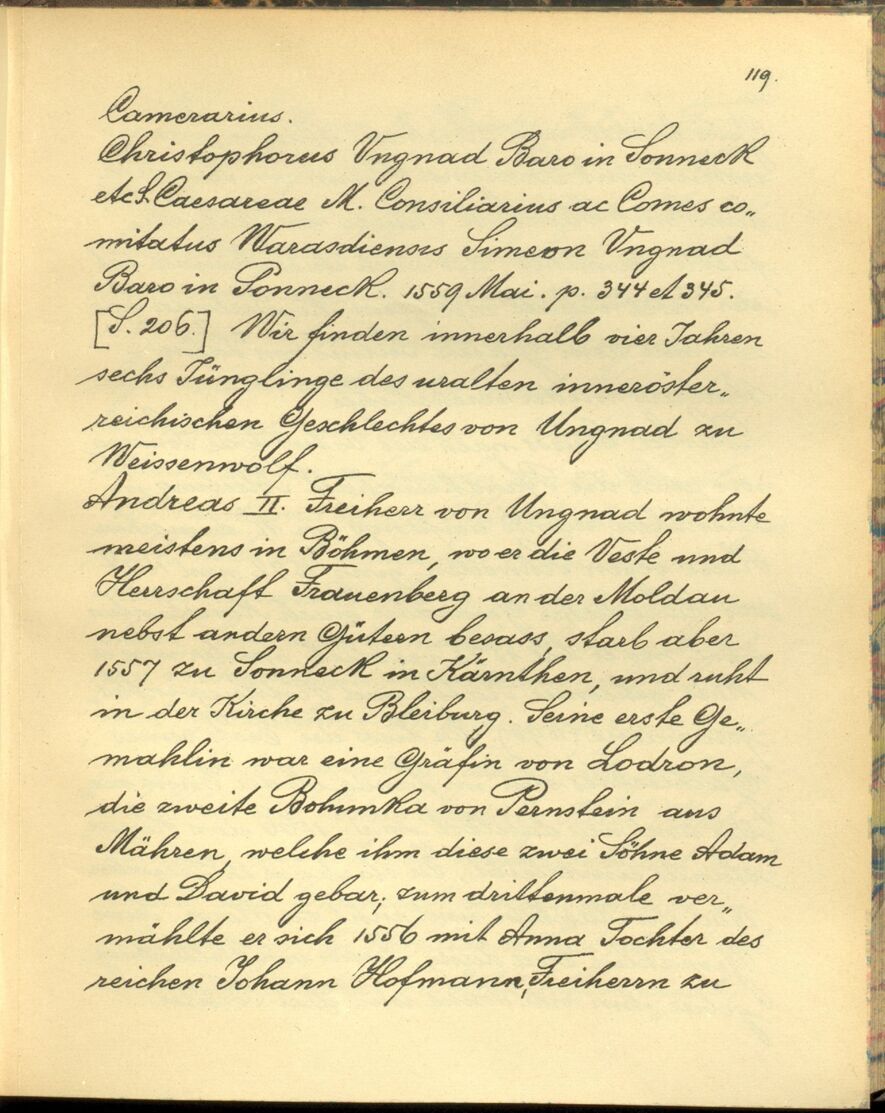 119.
Camerarius.
Christophorus Vngnad Baro in Sonneck
etc S. Caesareae M. Consiliarius ac Comes co„
mitatus Warasdiensis Simeon Vngnad
Baro in Sonneck. 1559 Mai. p. 344 et 345.
[S. 206.] Wir finden innerhalb vier Jahren
sechs Jünglinge des uralten inneröster„
reichischen Geschlechtes von Ungnad zu
Weissenwolf.
Andreas II. Freiherr von Ungnad wohnte
meistens in Böhmen, wo er die Veste und
Herrschaft Frauenberg an der Moldau
nebst andern Gütern besass, starb aber
1557 zu Sonneck in Kärnthen, und ruht
in der Kirche zu Bleiburg. Seine erste Ge„
mahlin war eine Gräfin von Lodron,
die zweite Bohunka von Pernstein aus
Mähren, welche ihm diese zwei Söhne Adam
und David gebar; zum drittenmale ver„
mählte er sich 1556 mit Anna Tochter des
reichen Johann Hofmann, Freiherrn zu